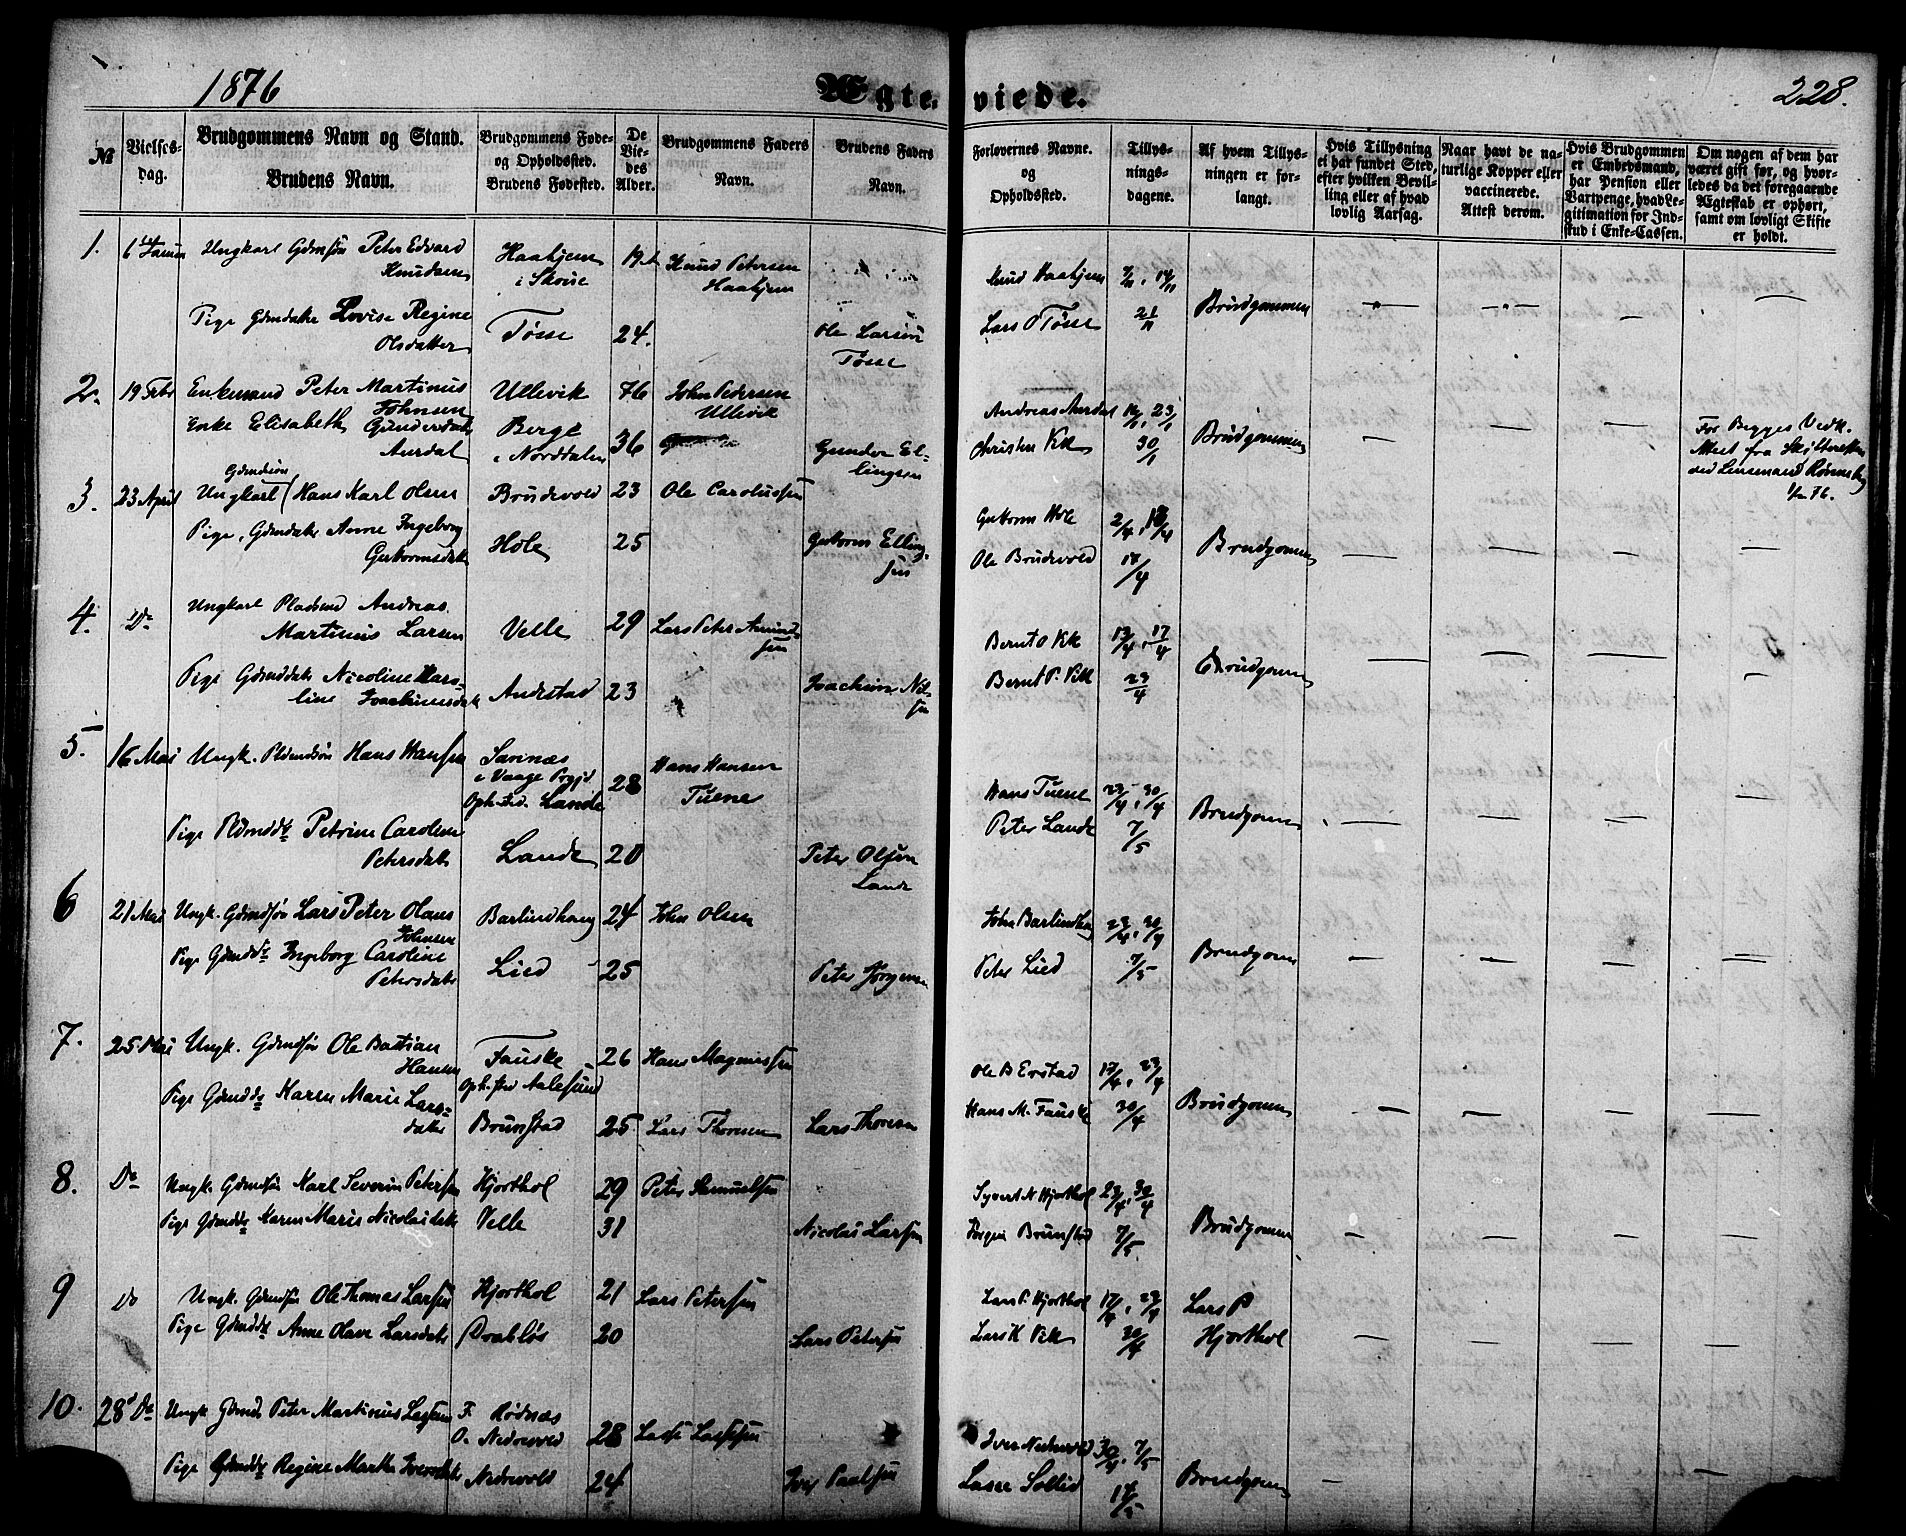 1876
Ægteviede.
228.
№
Vielses-
dag.
Brudgommens Navn og Stand.
Brudens Navn.
Brudgommens Føde-
og Opholdssted.
Brudens Fødested.
De
Vie-
des
Alder.
Brudgommens Faders
Navn.
Brudens Faders
Navn.
Forlovernes Navne.
og
Opholdssted.
Tillys-
nings-
dagene.
Af hvem Tillys-
ningen er for-
langt.
Hvis Tillysning
ei har fundet Sted,
efter hvilken Bevil-
ling eller af hvad
lovlig Aarsag.
Naar havt de na-
turlige Kopper eller
vaccinerede.
Attest derom.
Hvis Brudgommen
er Embedsmand,
har Pension eller
Vartpenge, hvad Le-
gitimation for Ind-
skud i Enke-Cassen.
Om nogen af dem har
været gift før, og hvor-
ledes da det foregaaende
Ægteskab er ophørt,
samt om lovligt Skifte
er holdt.
1. Ungkarl Gdmsøn Peter Edvard
Knudsen
Haahjem
i Skoue
Knud Petersen
Haahjem
Knud Haahjem 7/11, 14/11
Pige Gdmdatter Lovise Regine
Olsdatter
Tøsse 24.
Ole Larsen
Tøsse
Lars O Tøsse 21/11 Brudgommen
2. 19 Febr Enkemand Peter Martinus
Johnsen
Urlevik 76 John Pedersen
Urlevik
Andreas Aurdal 16/1, 23/1
Enke Elisabeth Gundersdatr
Aurdal
Berge
i Norddalen 36
Gunder El-
lingsen
Christen Vik 30/1 Brudgommen
For Begges Vedk.
Attest fra Skifteretten
ved Lensmand
3. 23 April Gdmdsøn
Ungkarl Hans Karl Olsen Brudevold 23 Ole Carolussen
Guttorm Hole 2/4,
Pige, Gdmdatr Anne Ingeborg
Guttormsdatr
Hole 25
Guttorm Elling-
sen
Ole Brudevold Brudgommen
4. Do Ungkarl Pladsmd Andreas
Martinus Larsen
Velle 29 Lars Peter
sen
Bernt O Vik 13/4, 17/4
Pige Gdmddatr Nicoline Karo-
line Joachimsdatr
Andestad 23
Joachim Nil-
sen
Bernt P. Vik 23/4 Brudgommen
5. 16 Mai Ungk. Pldmdsøn Hans Hansen
i Vaage Prgjd.
Oph.sted. Lande
28
Hans Hansen
Tuene
Hans Tuene 23/4, 30/4
Pige Pldmddtr Petrine Caroline
Petersdatr
Lande 20
Peter Olsen
Lande
Peter Lande 7/5 Brudgommen
6 21 Mai Ungk. Gdmdsøn Lars Peter Olaus
Johnsen
Barlindhaug 24 John Olsen
John Barlindhaug 23/4, 30/4
Pige Gdmddtr Ingeborg Caroline
Petersdatr
Lied 25
Peter Jørgensen
Peter Lied 7/5 Brudgommen
7. 25 Mai Ungk. Gdmdsøn Ole Bastian
Hansen
Fauske
Oph.sted Aalesund
26 Hans Magnussen
Ole B Erstad 17/4, 23/4
Pige Gdmddtr Karen Marie Lars-
datter
Brunstad 25 Lars Thoresen Lars Thoresen
Hans M. Fauske 30/4 Brudgommen
8. Do Ungk. Gdmdsøn Karl Severin Petersen Hjorthol 29 Peter Samuelsen
Syvert N Hjorthol 23/4, 30/4
Pige Gdmddtr Karen Marie Nicolaidatr Velle 31
Nicolai Larsen
Jørgen Brunstad 7/5 Brudgommen
9 Do Ungk. Gdmdsøn Ole Thomas Larsen Hjorthol 21 Lars Petersen
Lars P. Hjorthol 17/4, 23/4 Lars P
Pige Gdmddtr Anne Olave Larsdatr Drabløs 20
Lars Petersen
Lars K Vik 30/4 Hjorthol
10. 28 Do Ungk Gdmds Peter Martinus Lassesen
F. Rødnæs
O. Nedrevold
28 Lasse Lassesen
Iver Nedrevold 30/4, 7/5
Pige Gdmddtr Regine Martha Iversdatr Nedrevold 24
Iver Paalsen
Lasse 14/5 Brudgommen